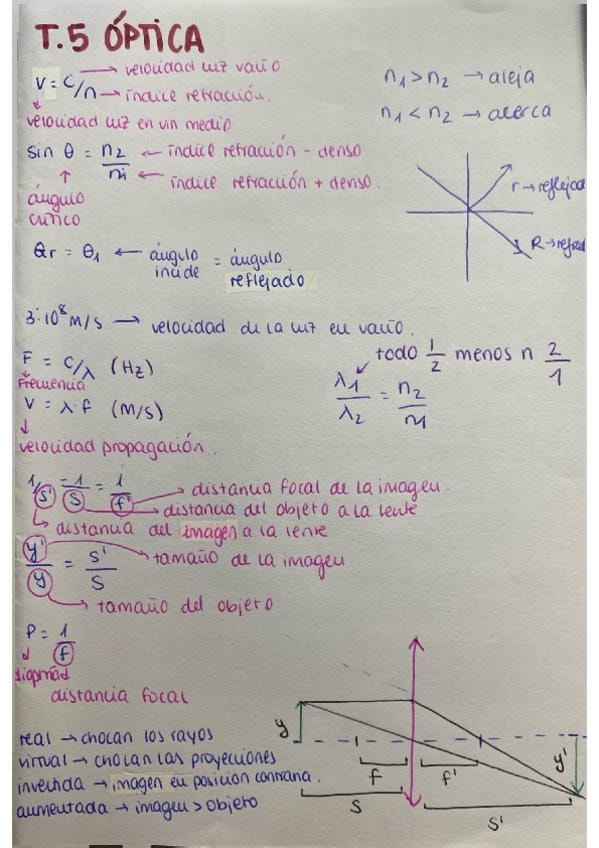 T.5 ÓPTICA
v = c/n → velocidad luz vacío
→ índice refracción.
velocidad luz en un medio
n1 > n2 → aleja
n1 < n2 → acerca
sin θ = n2/n1 ← índice refracción - denso
← índice refracción + denso.
ángulo
crítico
r → reflejada
R → refrac
θr = θ1 ← ángulo incide = ángulo reflejado
3·10⁸ m/s → velocidad de la luz en vacío.
F = c/λ (Hz)
Frecuencia
todo 1/2 menos n 2/1
λ1/λ2 = n2/n1
V = λ·f (m/s)
velocidad propagación.
1/s' - 1/s = 1/f' → distancia focal de la imagen.
→ distancia del objeto a la lente
→ distancia del imagen a la lente
y'/y = s'/s → tamaño de la imagen
→ tamaño del objeto
P = 1/f
distancia focal
real → chocan los rayos
virtual → chocan las proyecciones
invertida → imagen en posición contraria.
aumentada → imagen > objeto
y
f
f'
y'
s
s'